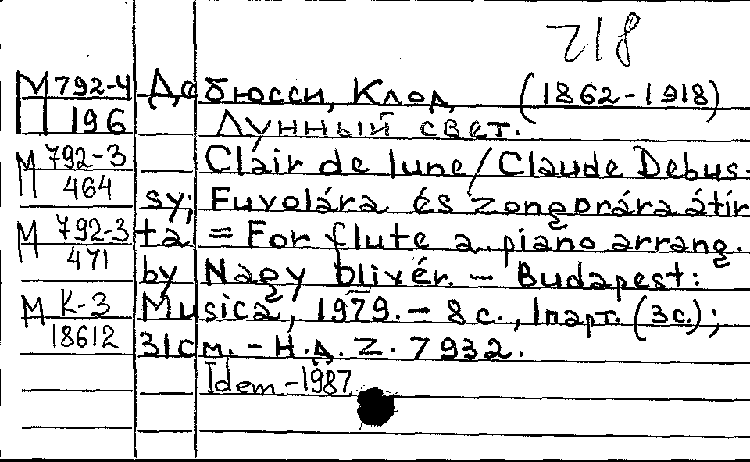 718
М 792-4 Дебюсси, Клод (1862-1918)
196 Лунный свет.
М 792-3 Clair de lune/Claude Debus-
464 sy; Fuvolára és zongorára átír
М 792-3 ta = For flute a. piano arrang.
471 by Nagy Olivér. - Budapest:
М К-3 Musica, 1979. - 8 с., 1 парт. (3 с.);
18612 31 см. - Н.д. Z. 7932.
Idem.-1987